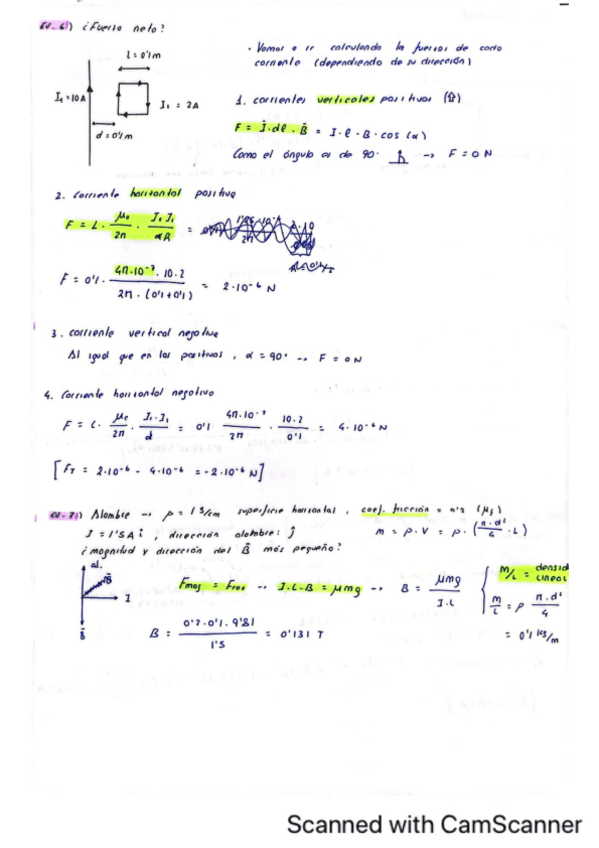 EV. 6) ¿Fuerza neta?
l = 0'1m
I₁ = 10A
I₂ = 2A
d = 0'1m
· Vamos a ir calculando la fuerza de cada
corriente (dependiendo de su dirección)
1. corrientes verticales positivas (⇧)
F = I·dl·B = I·l·B·cos(α)
Como el ángulo es de 90° → F = 0 N
2. Corriente horizontal positiva
F = L · μ₀/2π · I₁ I₂/
F = 0'1 · 4π·10⁻⁷·10·2 / 2π·(0'1+0'1) = 2·10⁻⁶ N
3. corriente vertical negativa
Al igual que en las positivas, α = 90° → F = 0N
4. Corriente horizontal negativa
F = L · μ₀/2π · I₁·I₂/d = 0'1 4π·10⁻⁷/2π · 10·2/0'1 = 4·10⁻⁶ N
[F_T = 2·10⁻⁶ - 4·10⁻⁶ = -2·10⁻⁶ N]
EV. 7) Alambre → ρ = 1 g/cm superficie horizontal, coef. fricción = 0'2
I = 1'5A î, dirección alambre: ĵ
m = ρ·V = ρ·(π·d²/4 · L)
¿magnitud y dirección del B más pequeño?
al.
B
I
B
Fmag = Froz → I·L·B = μmg → B = μmg / I·L
m/L = densid
lineal
m/L = ρ π·d²/4
= 0'1 kg/m
B = 0'2·0'1·9'81 / 1'5 = 0'131 T
Scanned with CamScanner